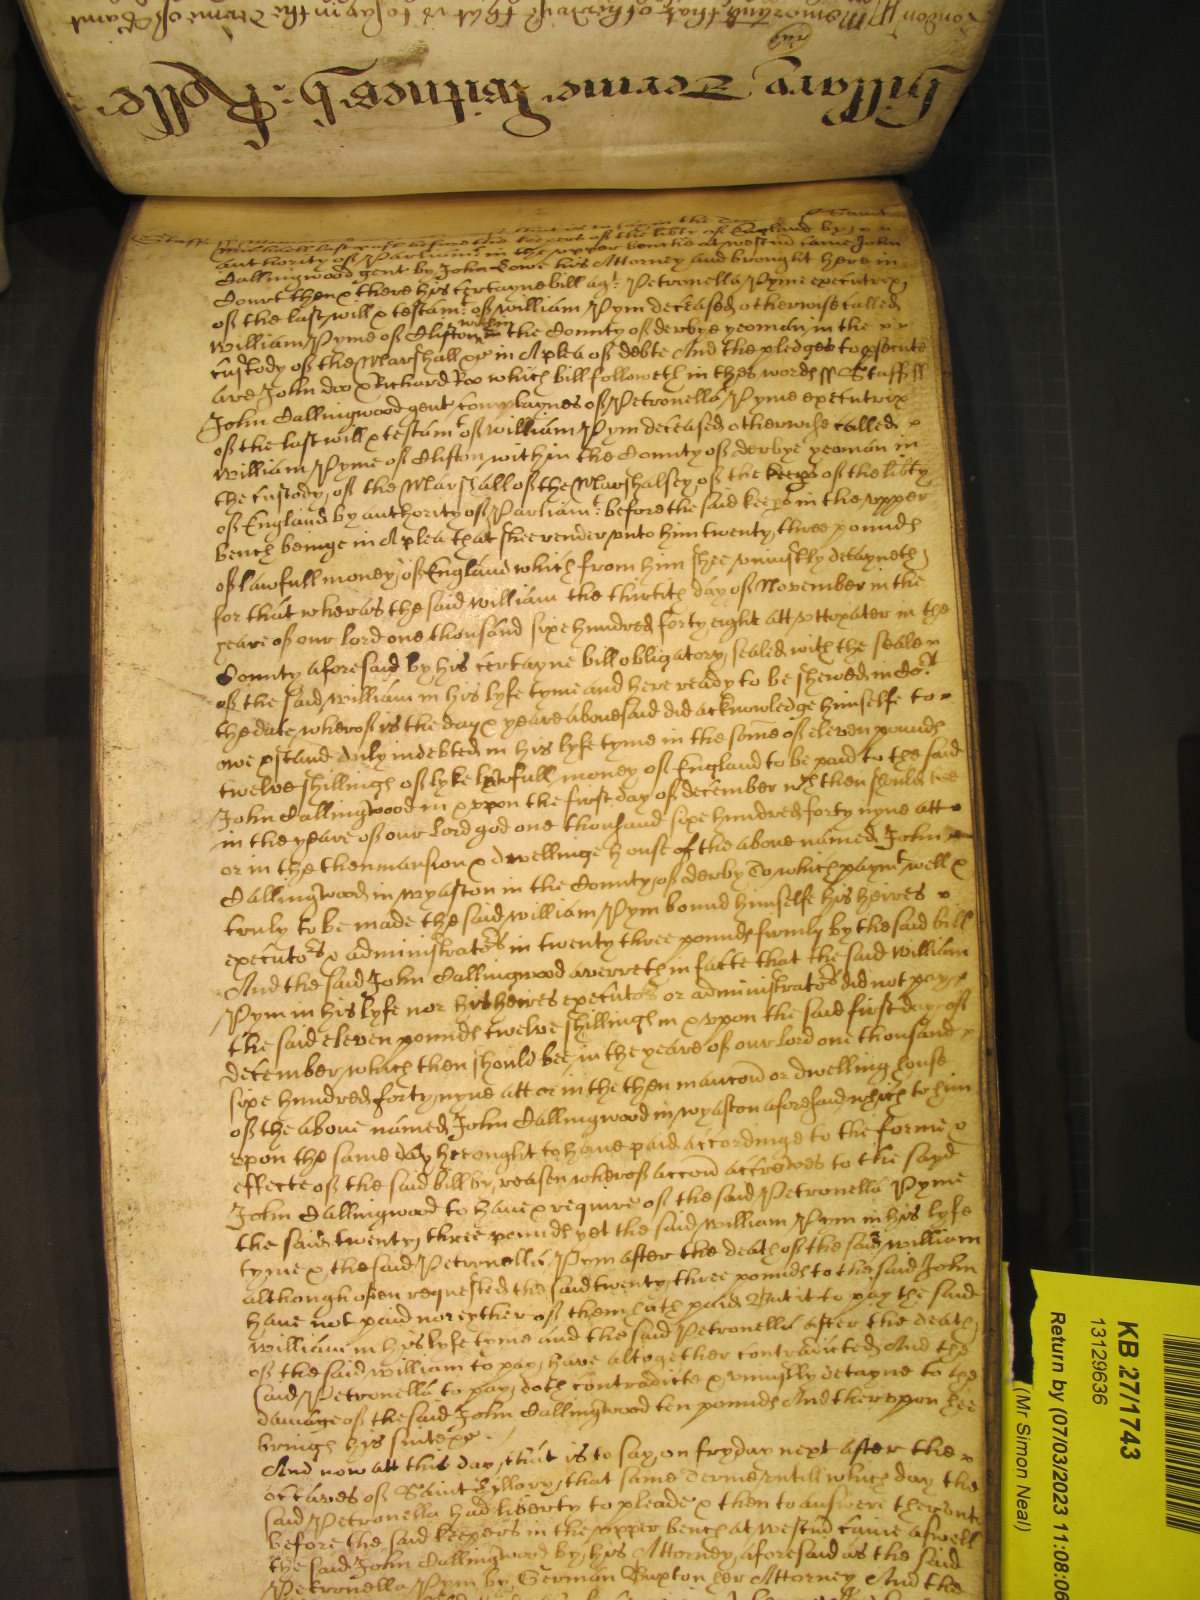 London Memorand that otherwise that is to say in the Terme of Saint
Hillary Terme Witnes: Rolle
Staff
Michaell last past before the keepers of the libty of England by
authority of Parliamt in the upper bench at Westm came John
Dallingwood gent by John Lowe his Attorney and brought here in
Court then & there his certayne bill agt: Petronella Pyme executrix
of the last will & testamt: of William Pym deceased otherwise called
William Pyme of Clifton within the County of derbye yeoman in the
custody of the Marshall &c in A plea of debte And the pledges to psecute
are John doo & Richard Roo which bill followeth in thes words ss Staff ss
John Dallingwood gent complaynes of Petronella Pyme executrix
of the last will & testamt of William Pym deceased otherwise called
William Pyme of Clifton within the County of derbye yeoman in
the custody of the Marshall of the Marshalsey of the keeps of the libty
of England by authority of Parliamt: before the said keeps in the upper
bench beinge in A plea that shee render unto him twenty three pounds
of lawfull money of England which from him shee uniustly detayneth
for that wheras the said William the thirtith day of November in the
yeare of our lord one thousand sixe hundred forty eight att uttoxater in the
County aforesaid by his certayne bill obligatory sealed with the seale
of the said William in his lyfe tyme and here ready to be shewed in Cort
the date wherof is the day & yeare abovesaid did acknowledge himselfe to
owe & stand duly indebted in his lyfe tyme in the some of eleven pounds
twelve shillings of lyke lawfull money of England to be paid to the said
John Dallingwood in & upon the first day of december wch then should bee
in the yeare of our Lord god one thousand sixe hundred forty nyne att
or in the then mansion & dwellinge house of the above named John
Dallingwood in wyaston in the County of derby To which paymt well &
truly to be made the said William Pym bound himselfe his heires
executors & administrators in twenty three pounds firmly by the said bill
And the said John Dallingwood averreth in facte that the said William
Pym in his lyfe nor his heires executors or administrators did not pay
the said eleven pounds twelve shillings in & upon the said first day of
december which then should bee in the yeare of our Lord one thousand
sixe hundred forty nyne att or in the then mancon or dwelling house
of the above named John Dallingwood in wyaston aforesaid which to him
upon the same day he ought to have paid accordinge to the forme &
effecte of the said bill by reason wherof accon accrewes to the sayd
John Dallingwood to have & require of the said Petronella Pyme
the said twenty three pounds yet the said William Pym in his lyfe
tyme & the said Petronella Pym after the death of the said William
although often requested the said twenty three pounds to the said John
have not paid nor eyther of them hath paid But it to pay the said
William in his lyfe tyme and the said Petronella after the death
of the said William to pay have altogether contradicted And the
said Petronella to pay doth contradicte & uniustly detayne to the
damage of the said John Dallingwood ten pounds And therupon hee
brings his suite &c
And now att this day that is to say on fryday next after the
octaves of Saint Hillary that same Terme untill which day the
said Petronella had liberty to pleade & then to answere therunto
before the said keepers in the upper bench at Westm came aswell
the said John Dallingwood by his Attorney aforesaid as the said
Petronella Pym by German Buxton her Attorney And the
KB 27/1743
13129636
Return by (07/03/2023 11:08:06
(Mr Simon Neal)